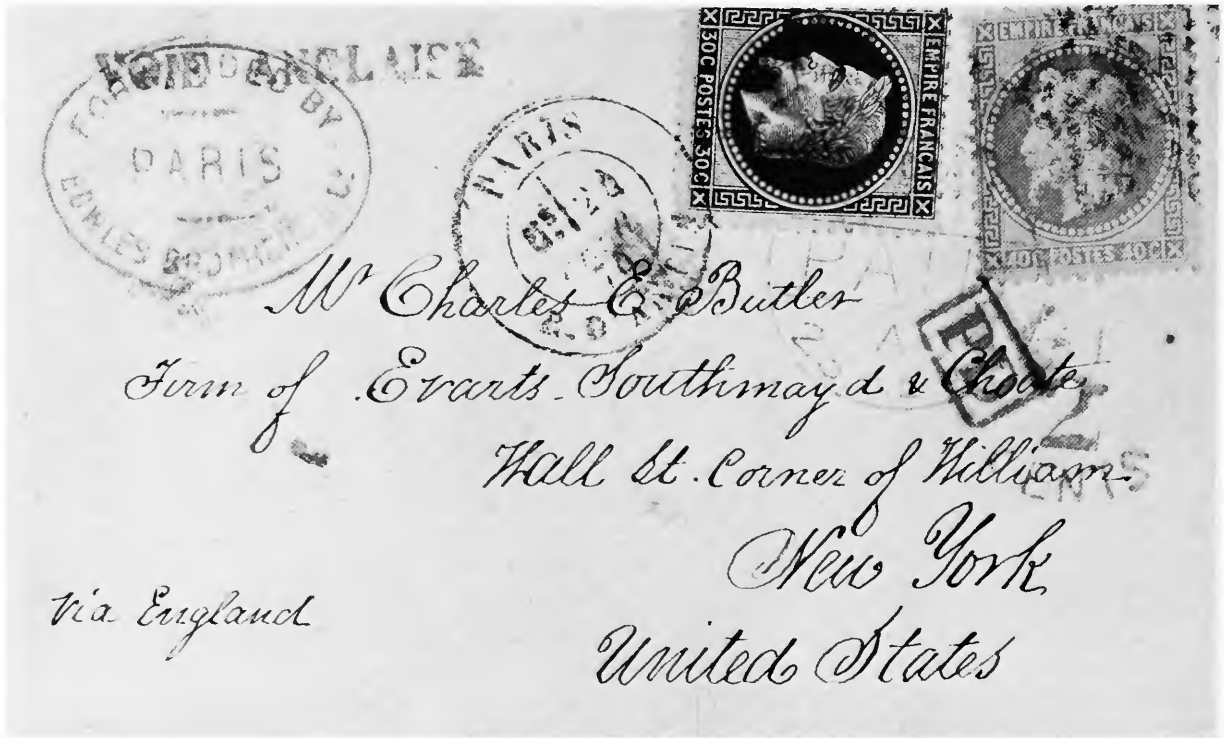 VOIE ANGLAISE
FORWARDED BY
PARIS
BOWLES BROTHERS
PARIS
30C POSTES 30C
EMPIRE FRANCAIS
EMPIRE FRANCAIS
40C POSTES 40C
Mr Charles E. Butler
Firm of Evarts Southmayd & Choate
Wall St. Corner of William
New York
via England
United States